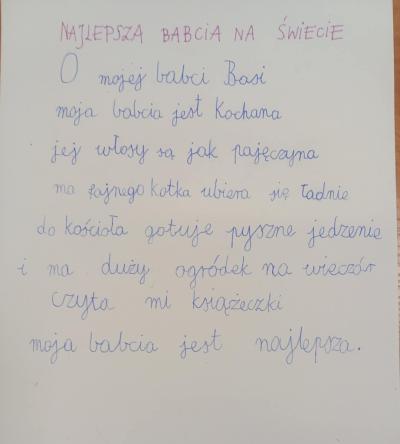 NAJLEPSZA BABCIA NA ŚWIECIE
O mojej babci Basi
moja babcia jest Kochana
jej włosy są jak pajęczyna
ma fajnego kotka ubiera się ładnie
do kościoła gotuje pyszne jedzenie
i ma duży ogródek na wieczór
czyta mi książeczki
moja babcia jest najlepsza.